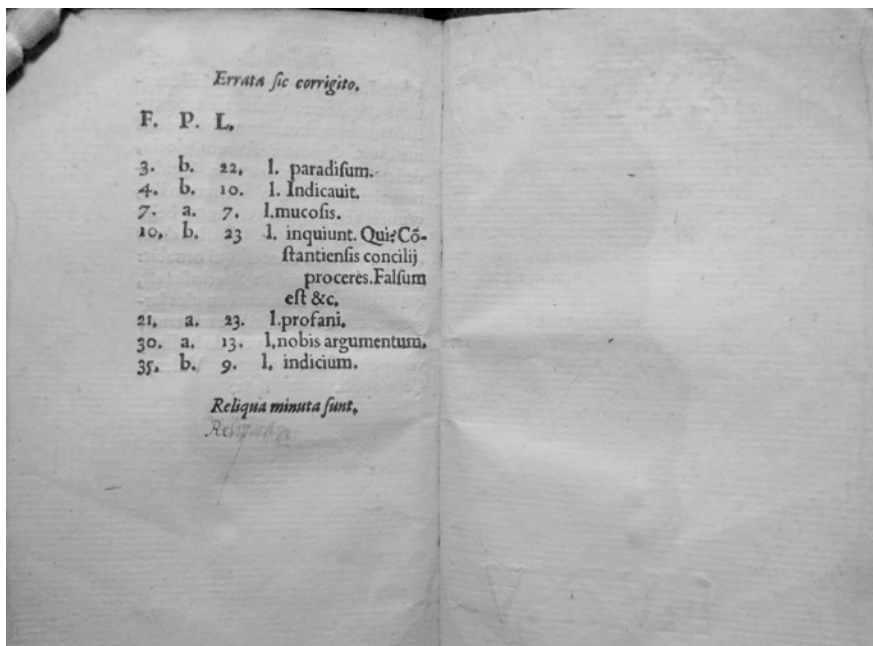 Errata ſic corrigito.
F. P. L.
3. b. 22. l. paradiſum.
4. b. 10. l. Indicauit.
7. a. 7. l.mucoſis.
10. b. 23 l. inquiunt. Qui? Cō-
ſtantienſis concilij
proceres.Falſum
eſt &c.
21. a. 23. l.profani.
30. a. 13. l.nobis argumentum.
35. b. 9. l. indicium.
Reliqua minuta ſunt.